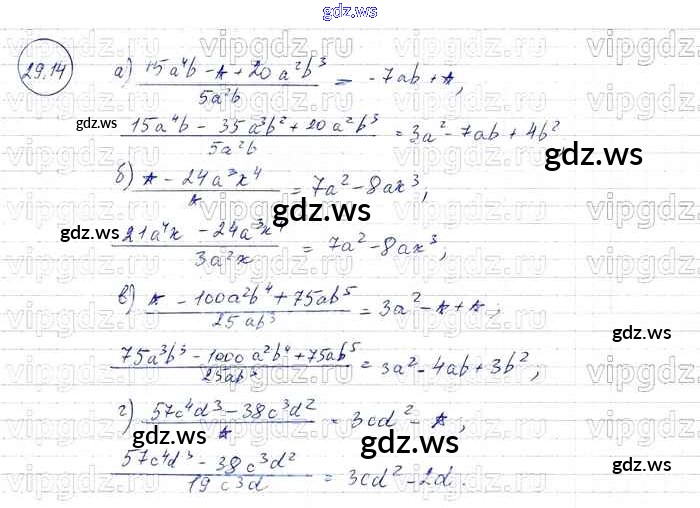 gdz.ws
29.14
а) (15a⁴b - * + 20a²b³)/(5a²b) = -7ab + *,
(15a⁴b - 35a³b² + 20a²b³)/(5a²b) = 3a² - 7ab + 4b²,
б) (* - 24a³x⁴)/* = 7a² - 8ax³,
(21a⁴x - 24a³x⁴)/(3a²x) = 7a² - 8ax³,
в) (* - 100a²b⁴ + 75ab⁵)/(25ab³) = 3a² - * + *;
(75a³b³ - 1000a²b⁴ + 75ab⁵)/(25ab³) = 3a² - 4ab + 3b²,
г) (57c⁴d³ - 38c³d²)/* = 3cd² - *;
(57c⁴d³ - 38c³d²)/(19c³d) = 3cd² - 2d.
vipgdz.ru
gdz.ws